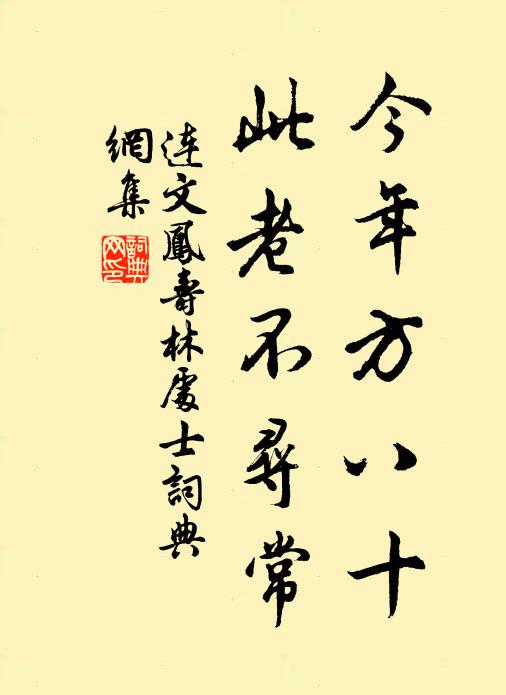 今年方八十
此老不尋常
連文鳳壽林處士詞典
網集
詞典
网印